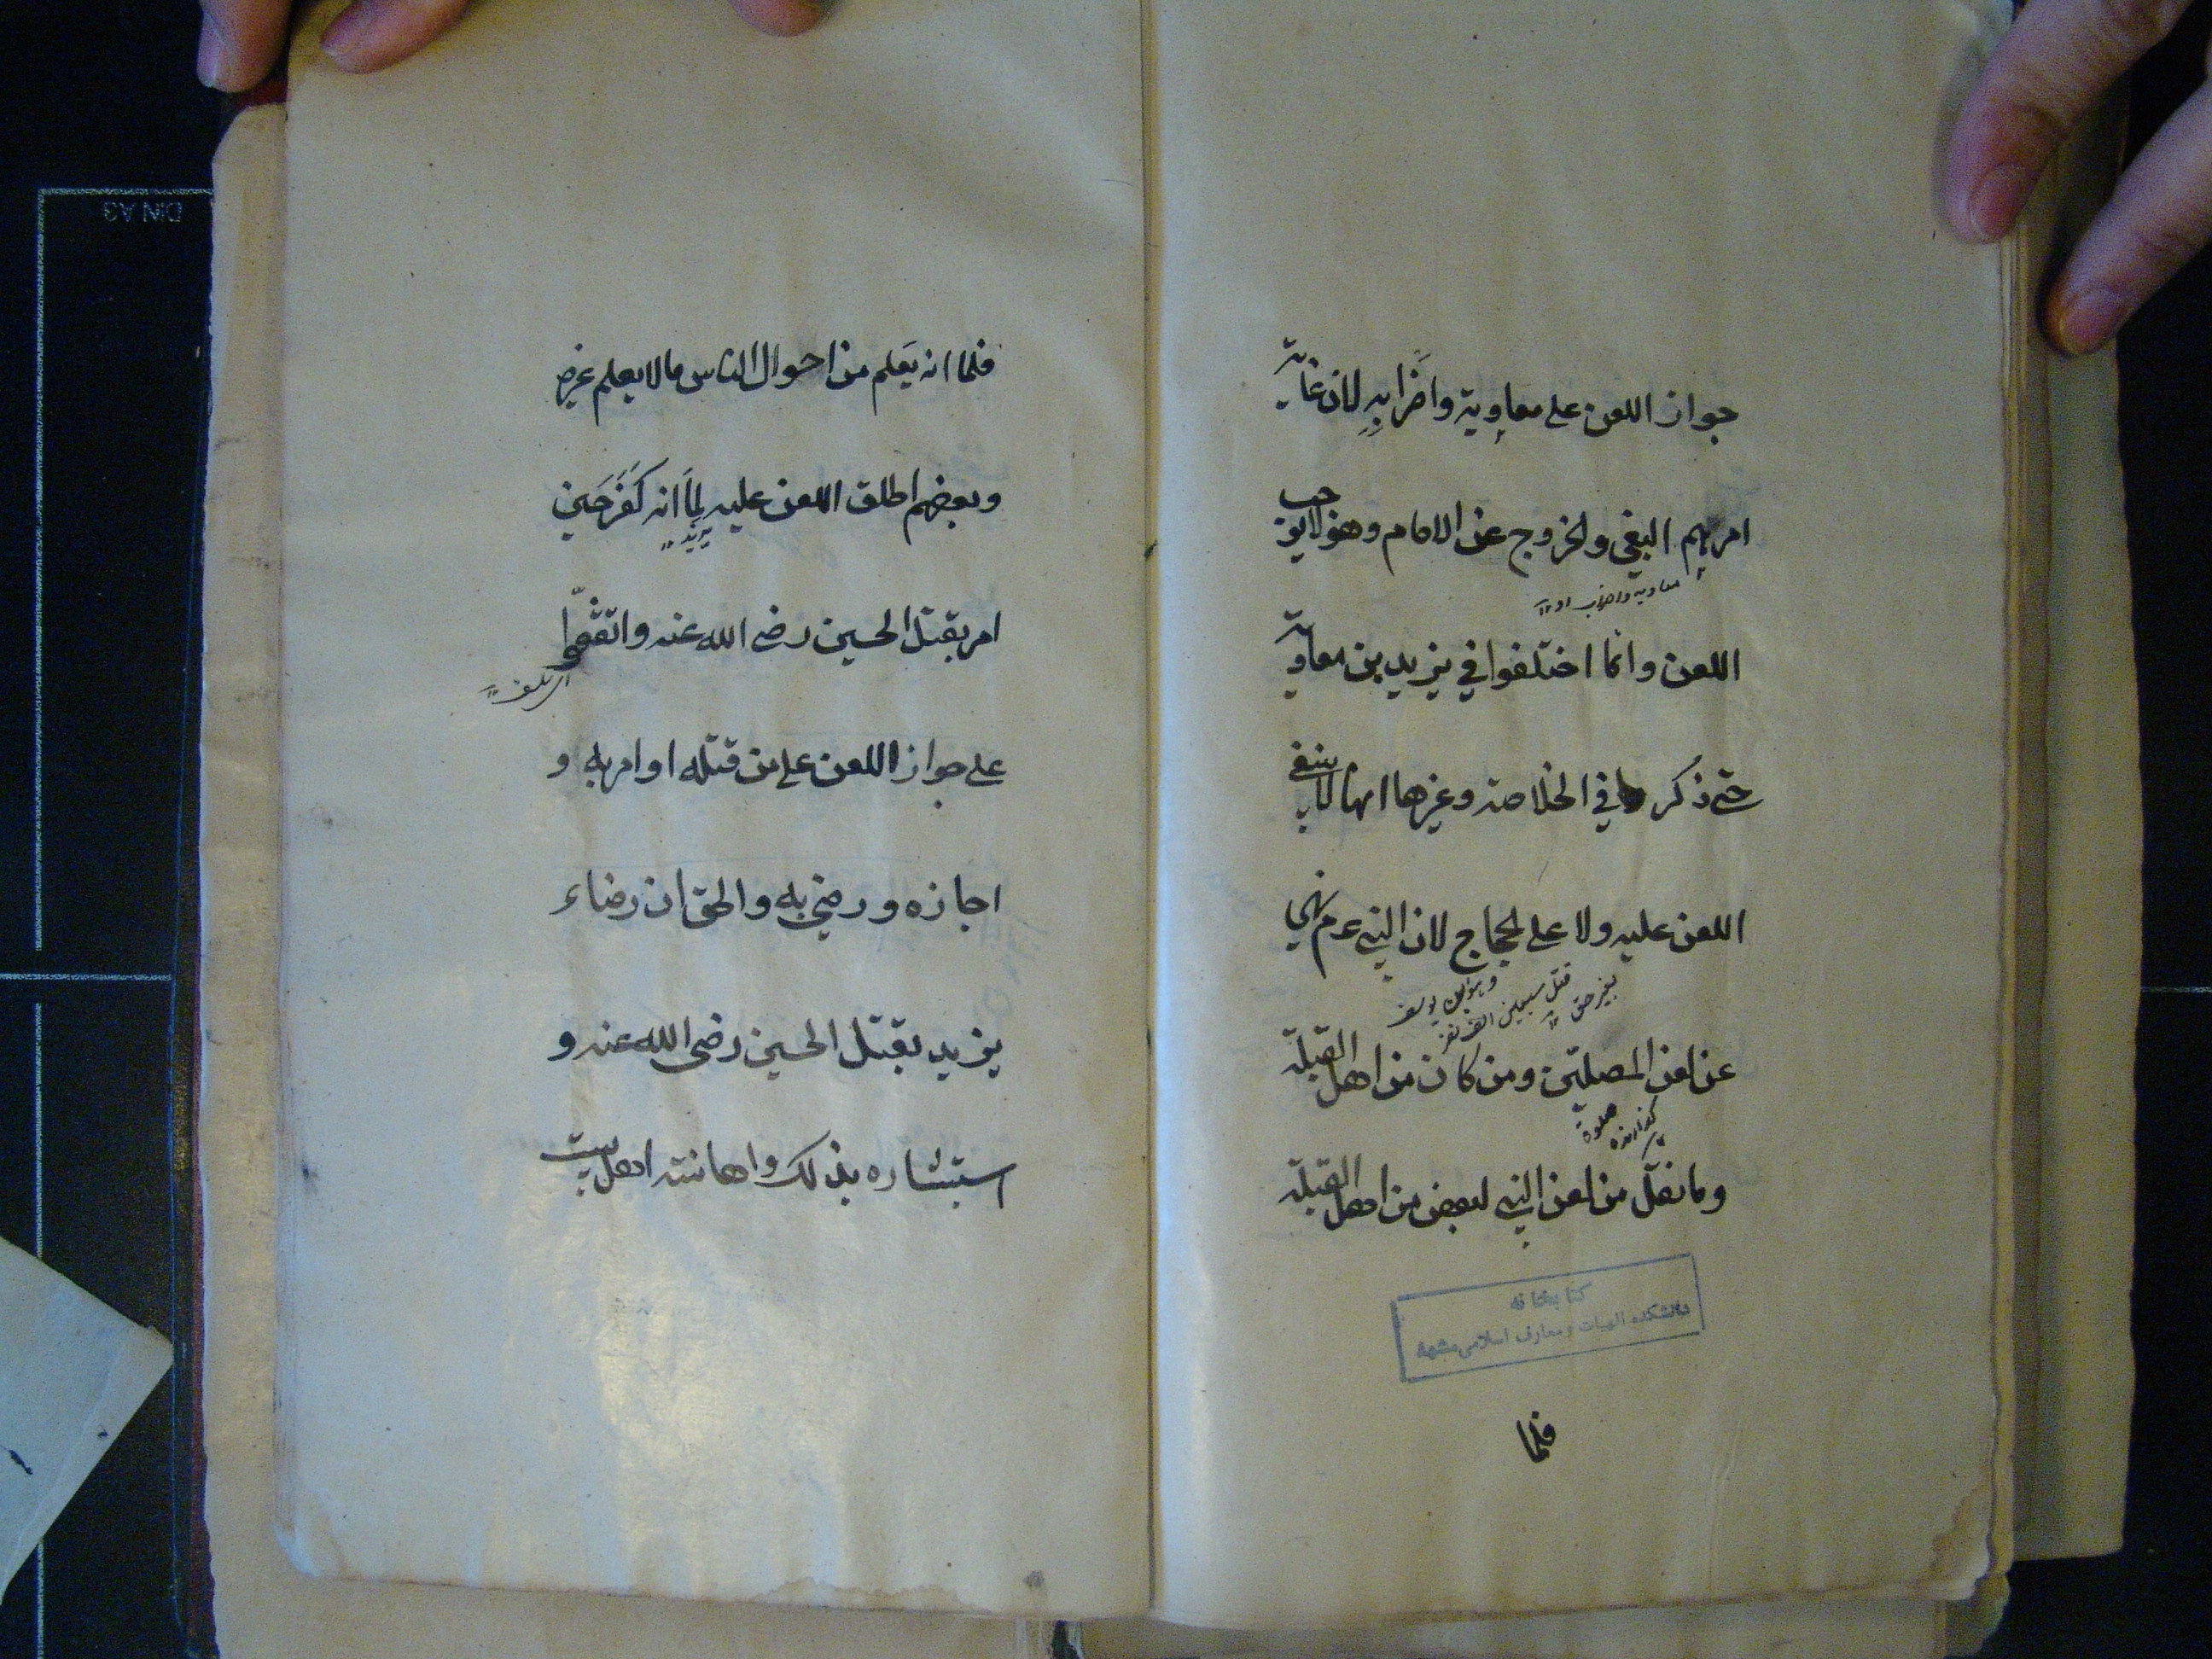 جواز اللعن على معاوية واضرابه لان غاية
امرهم البغي والخروج عن الامام وهو لا يوجب
معاويه واضراب او ١٢
اللعن وانما اختلفوا في يزيد بن معاوية
حتى ذكر في الخلاصة وغيرها انها لا ينبغي
اللعن عليه ولا على الحجاج لان النبي عم نهي
قتل سبعين الف نفر
بغير حق ١٢
عن لعن المصلين ومن كان من اهل القبلة
گذارنده
صلوة
وما نقل من لعن النبي لبعض من اهل القبلة
كتابخانه
دانشكده الهيات و معارف اسلامى مشهد
فلما
فلما انه يعلم من احوال الناس مالا يعلم غيره
وبعضهم اطلق اللعن عليه لما انه كفر حين
يزيد ١٢
امر بقتل الحسين رضى الله عنه واتفقوا
على جواز اللعن على من قتله او امر به و
اجازه ورضي به والحق ان رضاء
يزيد بقتل الحسين رضى الله عنه و
استبشاره بذلك واهانته اهل بيت